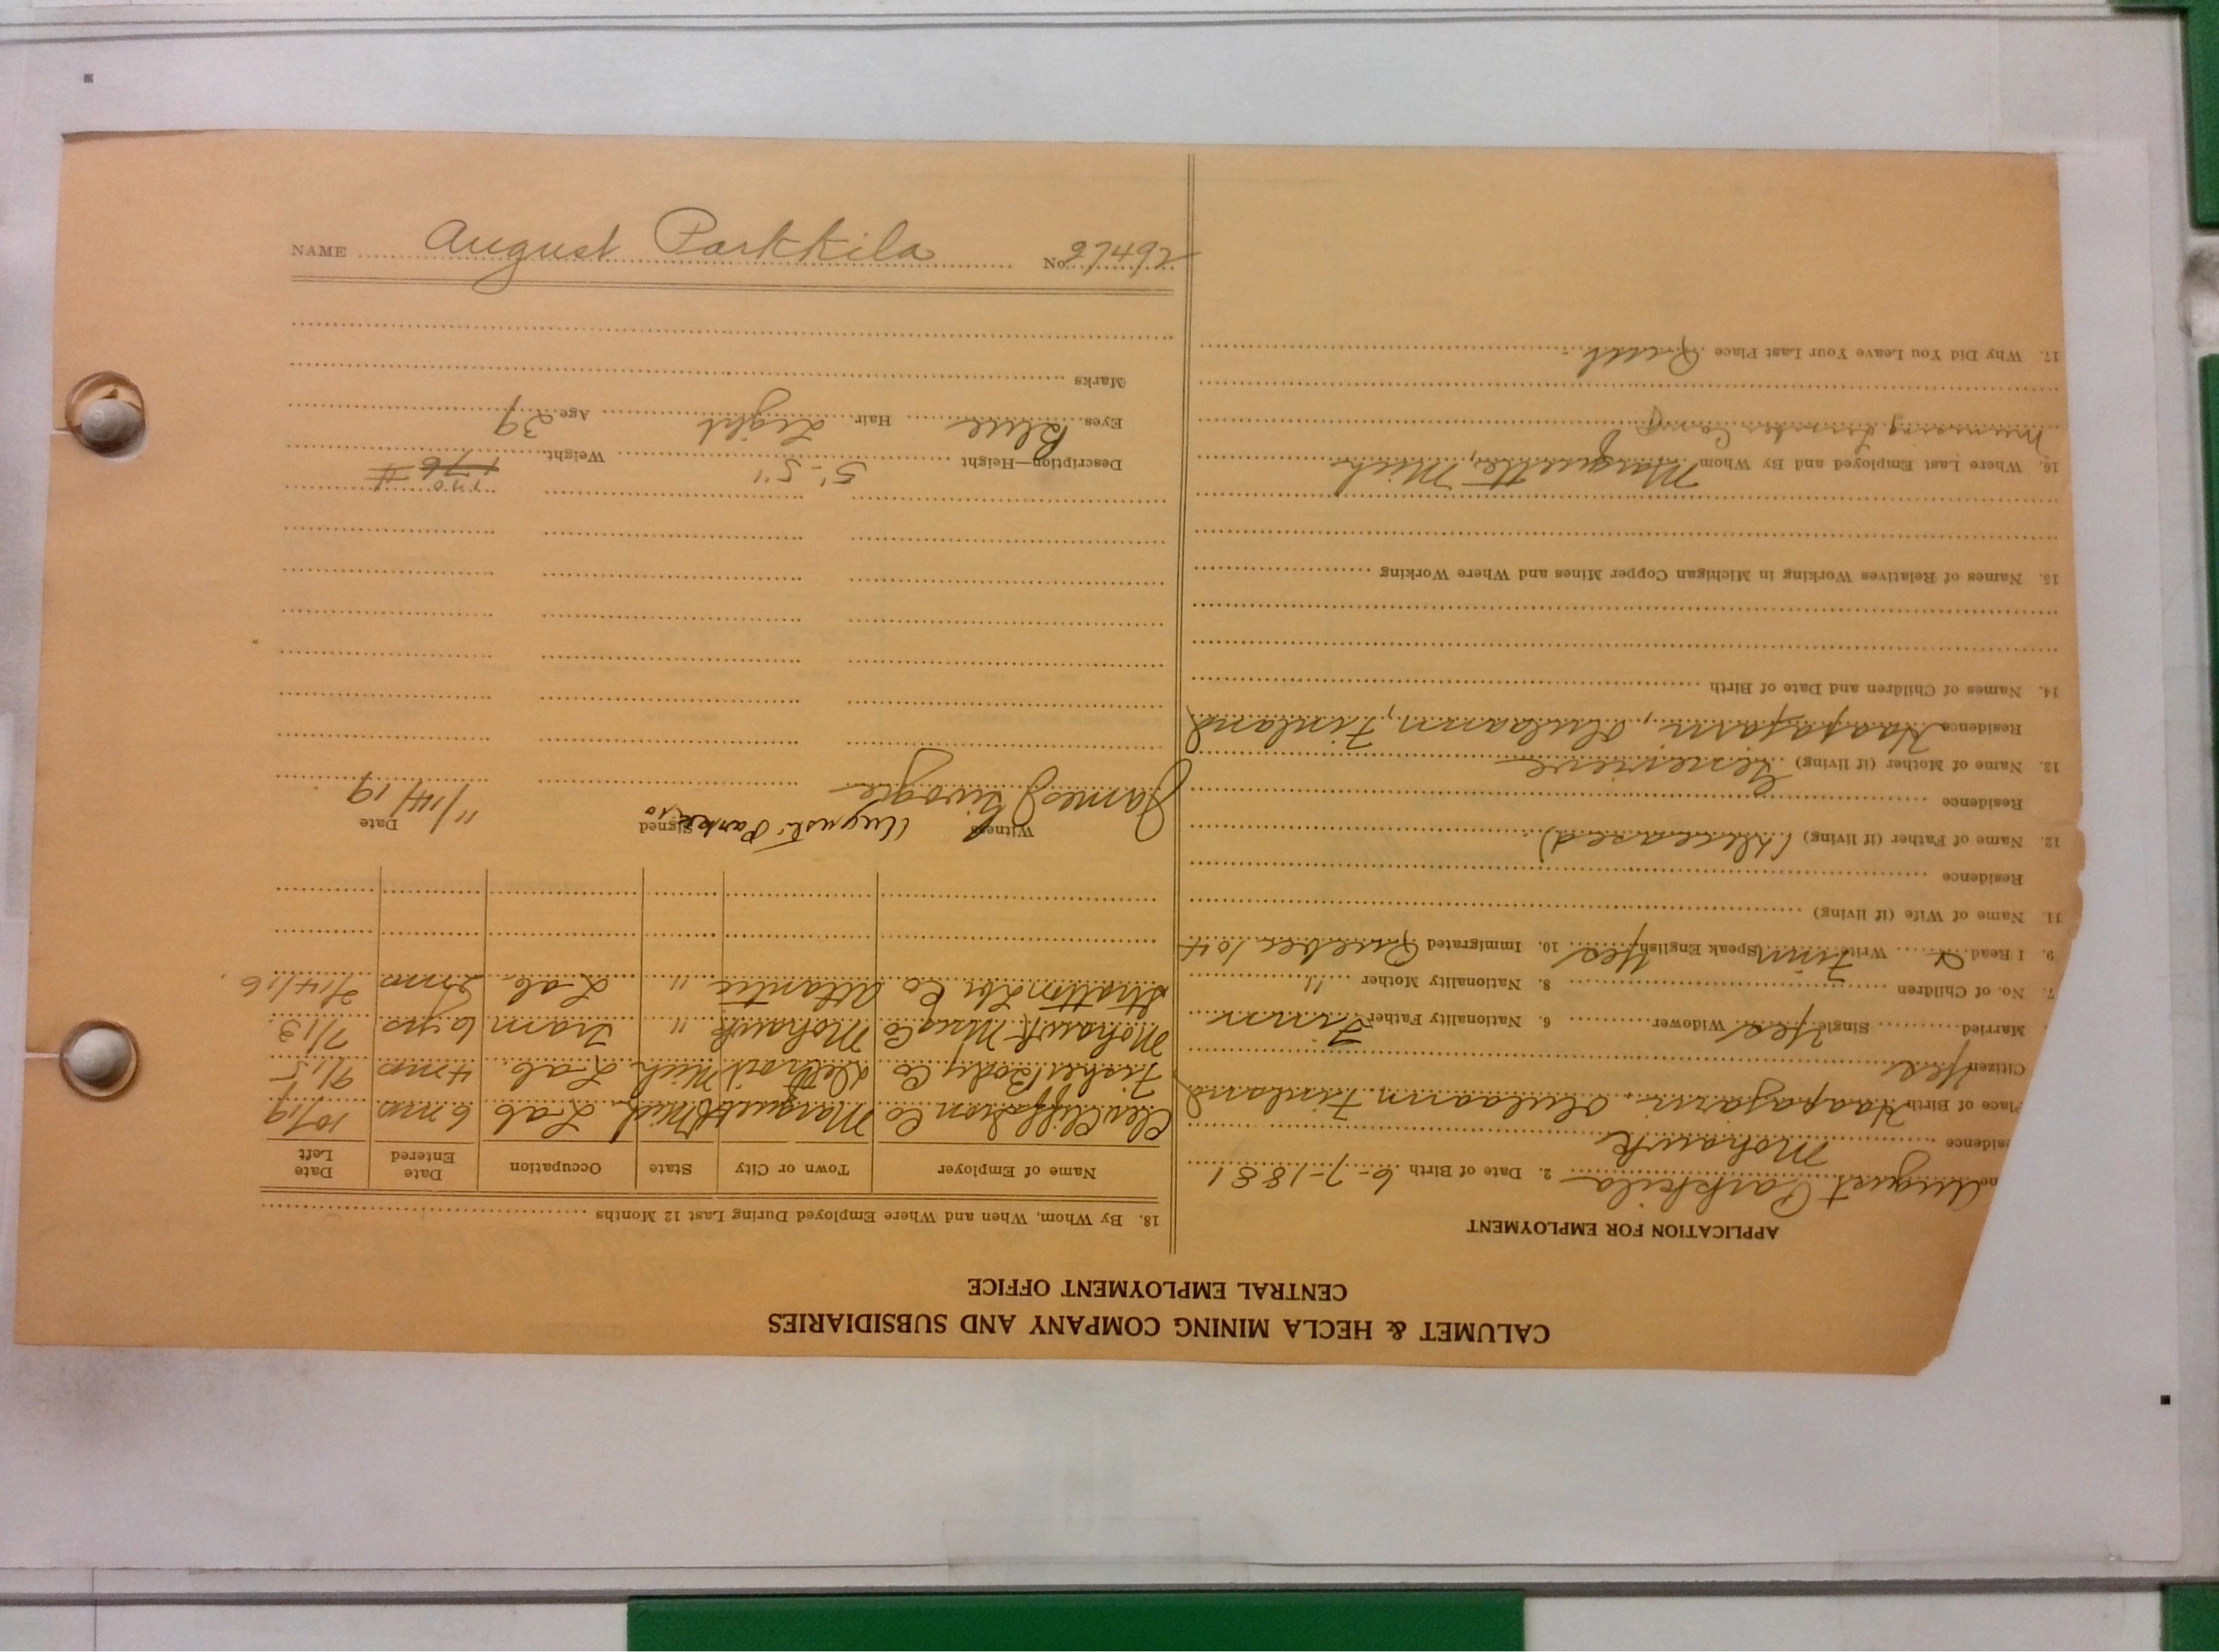 CALUMET & HECLA MINING COMPANY AND SUBSIDIARIES
CENTRAL EMPLOYMENT OFFICE
APPLICATION FOR EMPLOYMENT
me August Parkkila 2. Date of Birth 6-7-1881
sidence Mohawk
Place of Birth Haapajarvi, Oulaann, Finland
Citizen Yes
Married Single Yes Widower 6. Nationality Father Finn
7. No. of Children 8. Nationality Mother "
9. I Read Write Finn (Speak English) Yes 10. Immigrated Quebec 104
11. Name of Wife (if living)
Residence
12. Name of Father (if living) (Deceased)
Residence
13. Name of Mother (if living) Genevieve
Residence Haapajarvi, Oulaann, Finland
14. Names of Children and Date of Birth
15. Names of Relatives Working in Michigan Copper Mines and Where Working
16. Where Last Employed and By Whom Marquette, Mich
Munising Lumber Camp
17. Why Did You Leave Your Last Place Quit
18. By Whom, When and Where Employed During Last 12 Months
Name of Employer Town or City State Occupation Date Entered Date Left
Clev Cliffs Iron Co Marquette Mich Lab 6 mo 10/19
Fisher Body Co Detroit Mich Lab. 4 mo 9/15
Mohawk Mng Co Mohawk " Tram 6 yrs 7/13
Lbr Co Atlantic " Lab 2 mo 2/14/16.
Witness Signed Date
James August Park 11/14/19
Description—Height 5'-5" Weight 170 176 #
Eyes Blue Hair Light Age 39
Marks
NAME August Parkkila No 27492